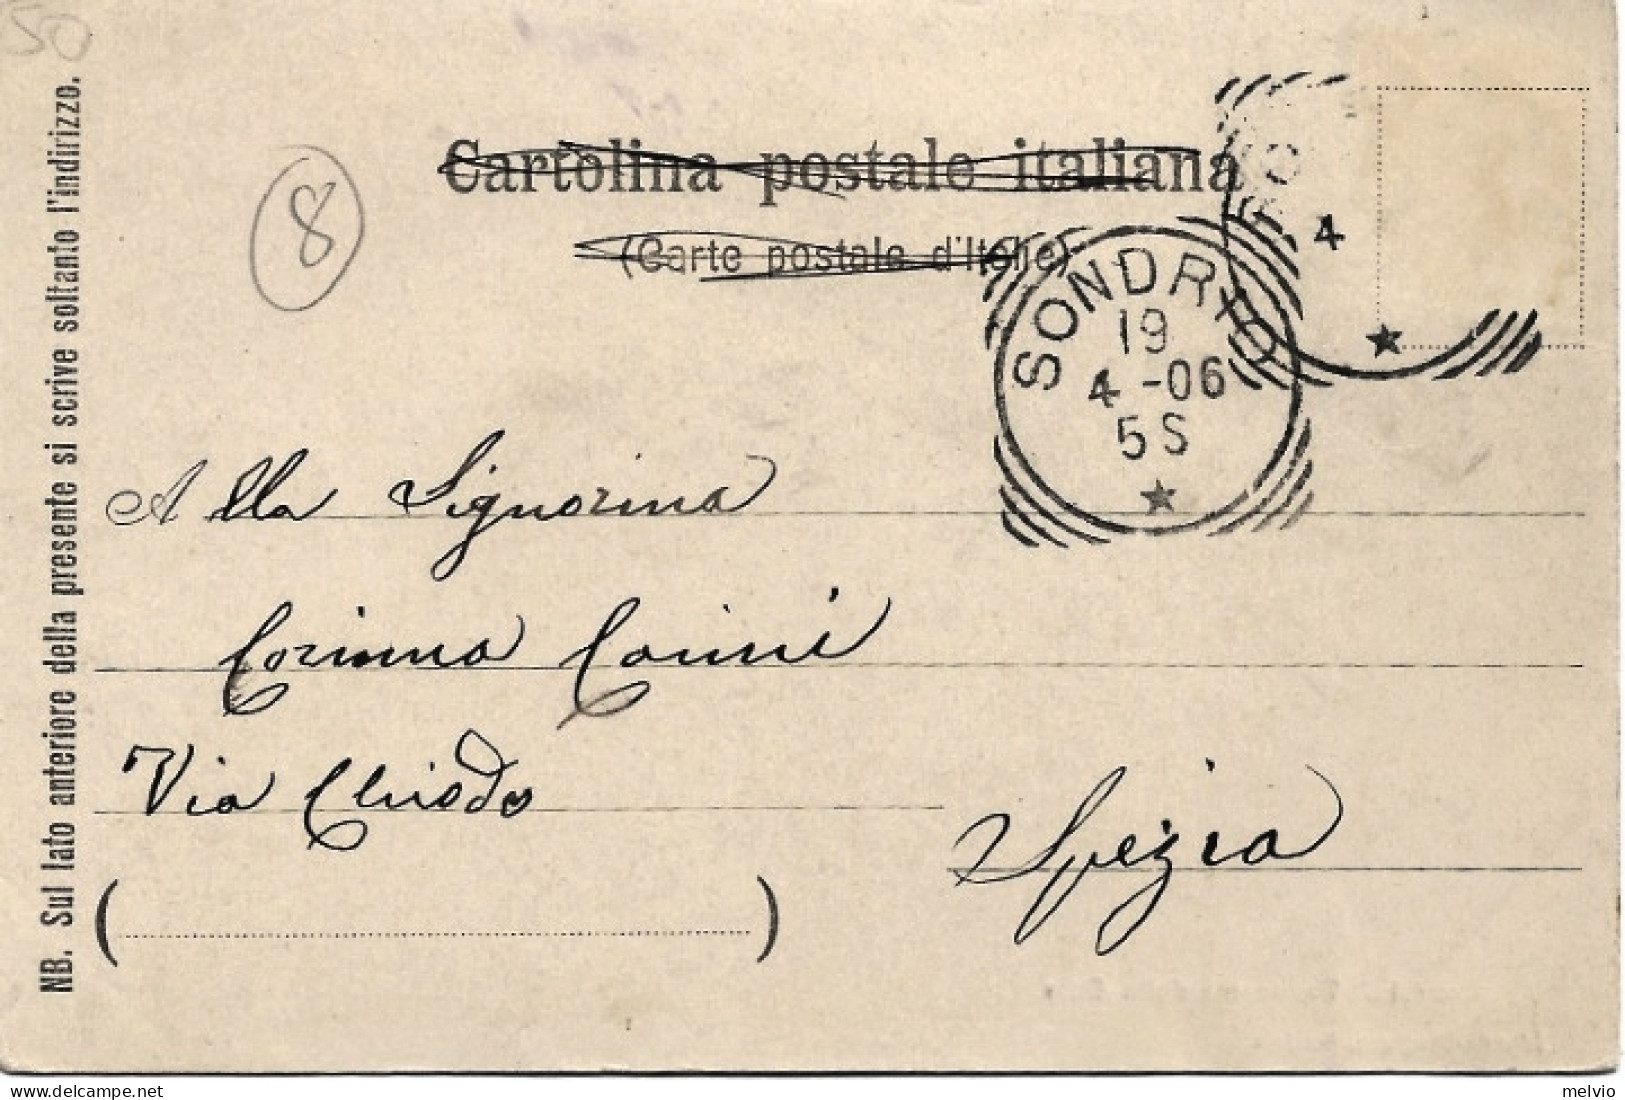 50
NB. Sul lato anteriore della presente si scrive soltanto l'indirizzo.
8
Cartolina postale italiana
(Carte postale d'Italie)
4
SONDRIO
19
4 -06
5 S
Alla Signorina
Corinna Carini
Via Chiodo
Spezia
( )
melvio